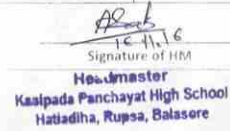 16.11.16
Signature of HM
Headmaster
Kasipada Panchayat High School
Hatiadiha, Rupsa, Balasore